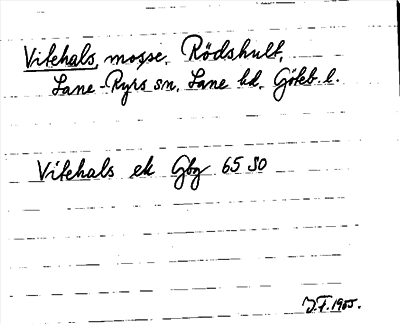 Vitehals, mosse, Rödshult,
Lane-Ryrs sn, Lane hd, Göteb. l.
Vitehals ek Gbg 65 SO
J.F. 1905.